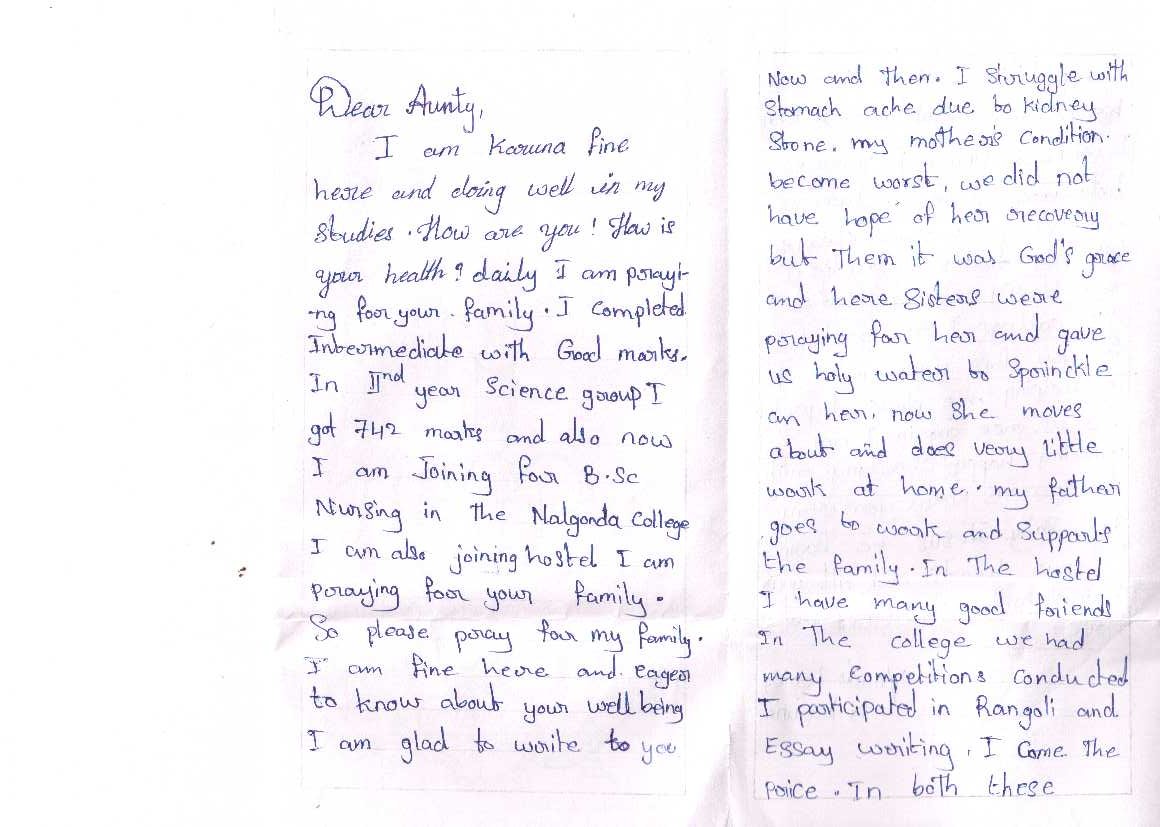 Dear Aunty,
I am Karuna fine
here and doing well in my
studies. How are you! How is
your health? daily I am prayi-
-ng for your family. I completed
Intermediate with Good marks.
In IInd year Science group I
got 742 marks and also now
I am Joining for B.Sc
Nursing in the Nalgonda College
I am also joining hostel I am
praying for your family.
So please pray for my family.
I am fine here and eager
to know about your wellbeing
I am glad to write to you
Now and then. I Struggle with
Stomach ache due to kidney
Stone. my mother's Condition.
become worst, we did not
have hope of her recovery
but Them it was God's grace
and here Sisters were
praying for her and gave
us holy water to Sprinckle
an her. now She moves
about and does very little
work at home. my father
goes to work and Supports
the family. In The hostel
I have many good friends
In The college we had
many Competitions conducted
I participated in Rangoli and
Essay writing, I Came The
price. In both these